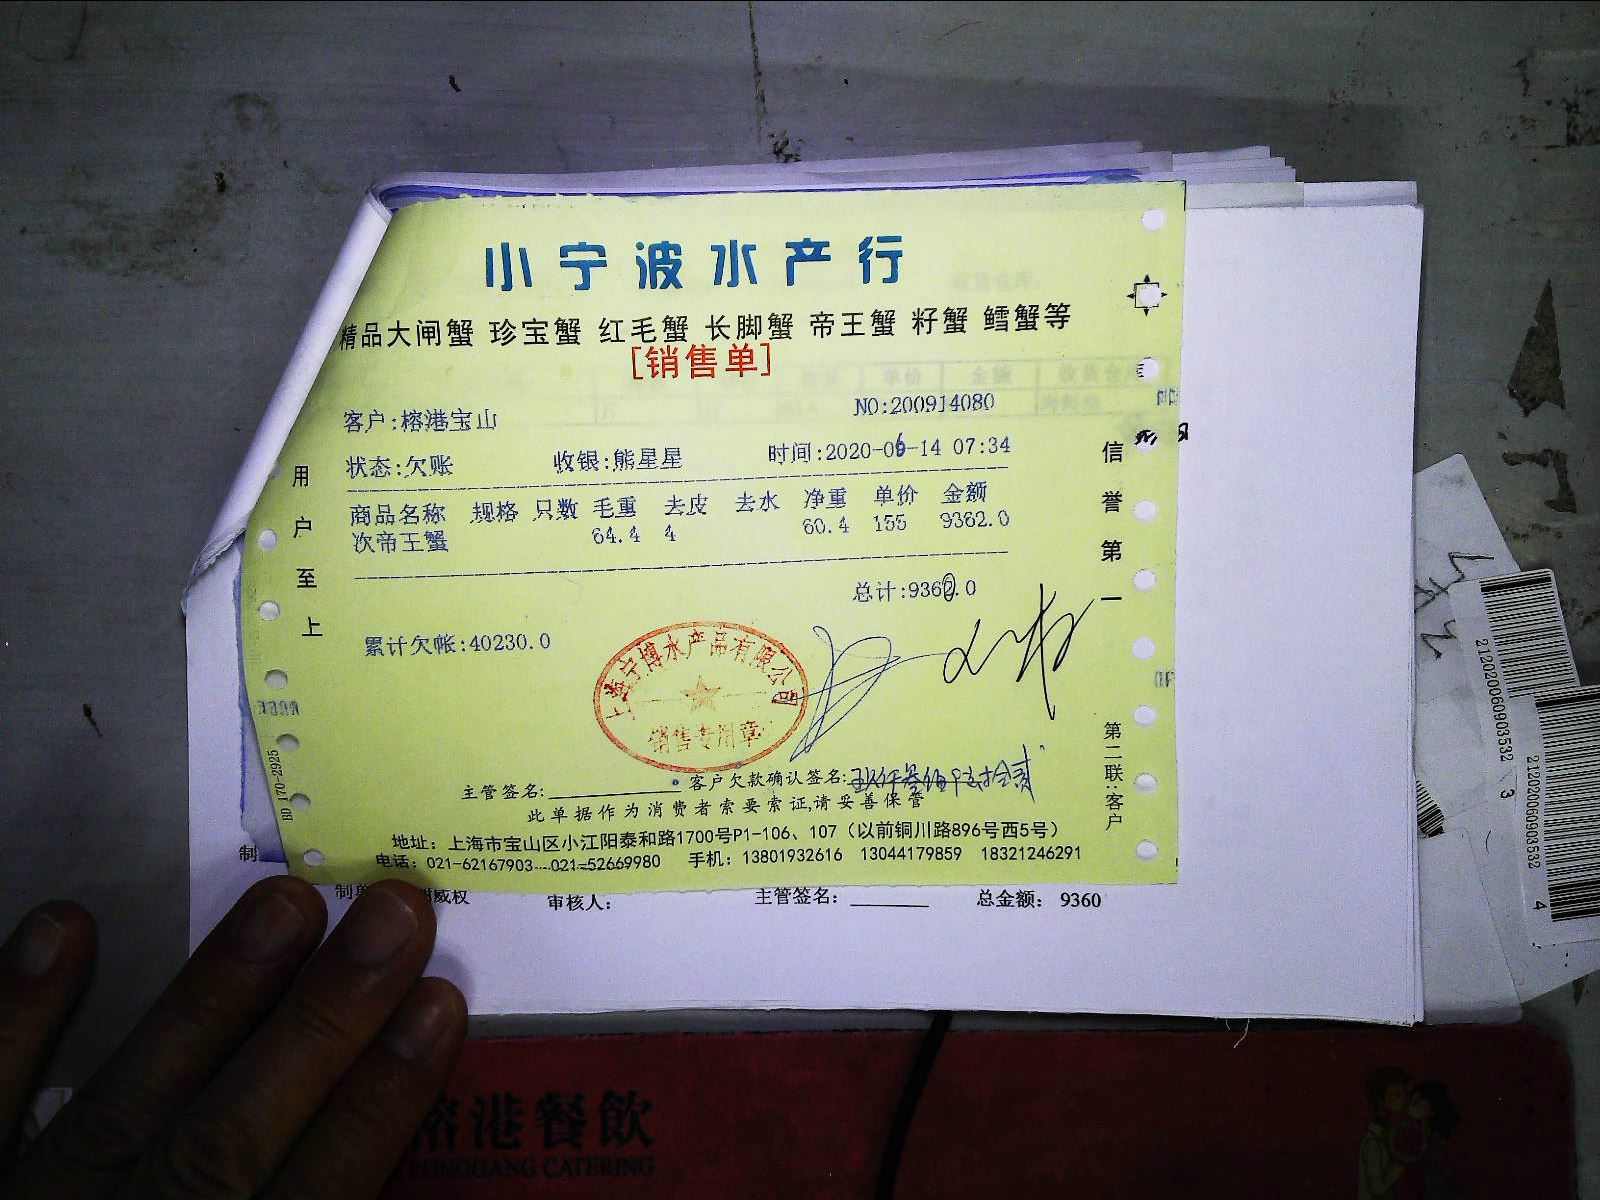 小宁波水产行
精品大闸蟹 珍宝蟹 红毛蟹 长脚蟹 帝王蟹 籽蟹 鳕蟹等
[销售单]
客户:榕港宝山
NO:200914080
状态:欠账 收银:熊星星 时间:2020-06-14 07:34
商品名称 规格 只数 毛重 去皮 去水 净重 单价 金额
次帝王蟹 64.4 4 60.4 155 9362.0
总计:9362.0
累计欠帐:40230.0
上海宁博水产品有限公司
销售专用章
主管签名: 客户欠款确认签名:
此单据作为消费者索要索证,请妥善保管
地址：上海市宝山区小江阳泰和路1700号P1-106、107（以前铜川路896号西5号）
电话：021-62167903 021-52669980 手机：13801932616 13044179859 18321246291
用户至上
信誉第一
第二联:客户
170-2925
制
审核人： 主管签名： 总金额： 9360
212020060903532 3
212020060903532 4
榕港餐飲
RONGGANG CATERING